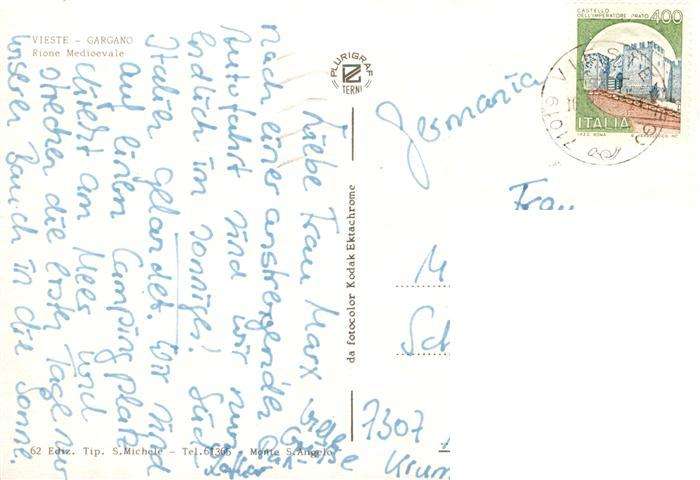 VIESTE - GARGANO
Rione Medioevale
Liebe Frau Marx
nach einer anstrengenden
Autofahrt sind wir nun
endlich im sonnigen Süd-
Italien gelandet. Wir sind
auf einem Campingplatz
direkt am Meer und
strecken die ersten Tage nur
unseren Bauch in die Sonne.
viele
Grüsse
62 Ediz. Tip. S.Michele - Tel.61305 Monte S.Angelo
PLURIGRAF
TERNI
da fotocolor Kodak Ektachrome
CASTELLO
DELL'IMPERATORE PRATO
400
ITALIA
Germania
Frau
M
Sch
7307
Krum